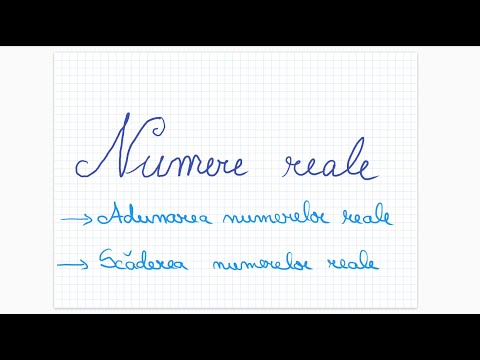 Numere reale
→ Adunarea numerelor reale
→ Scăderea numerelor reale